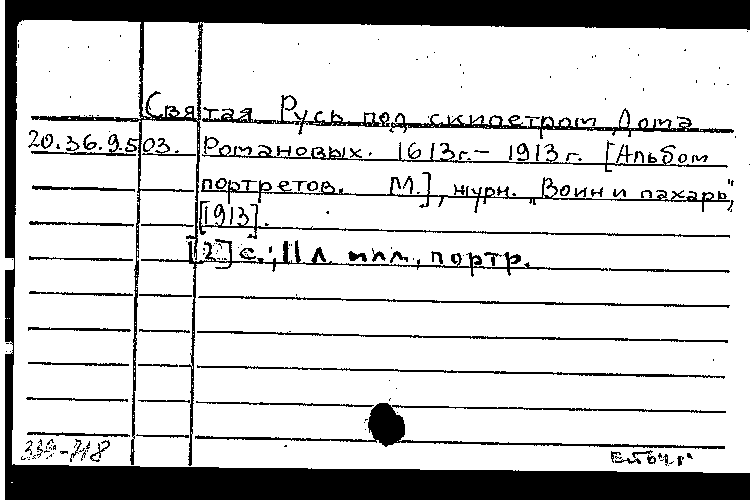 Святая Русь под скипетром Дома
20.36.9.503. Романовых. 1613г.– 1913 г. [Альбом
портретов. М.], журн. "Воин и пахарь",
[1913].
[2] с.; 11 л. илл., портр.
339-718